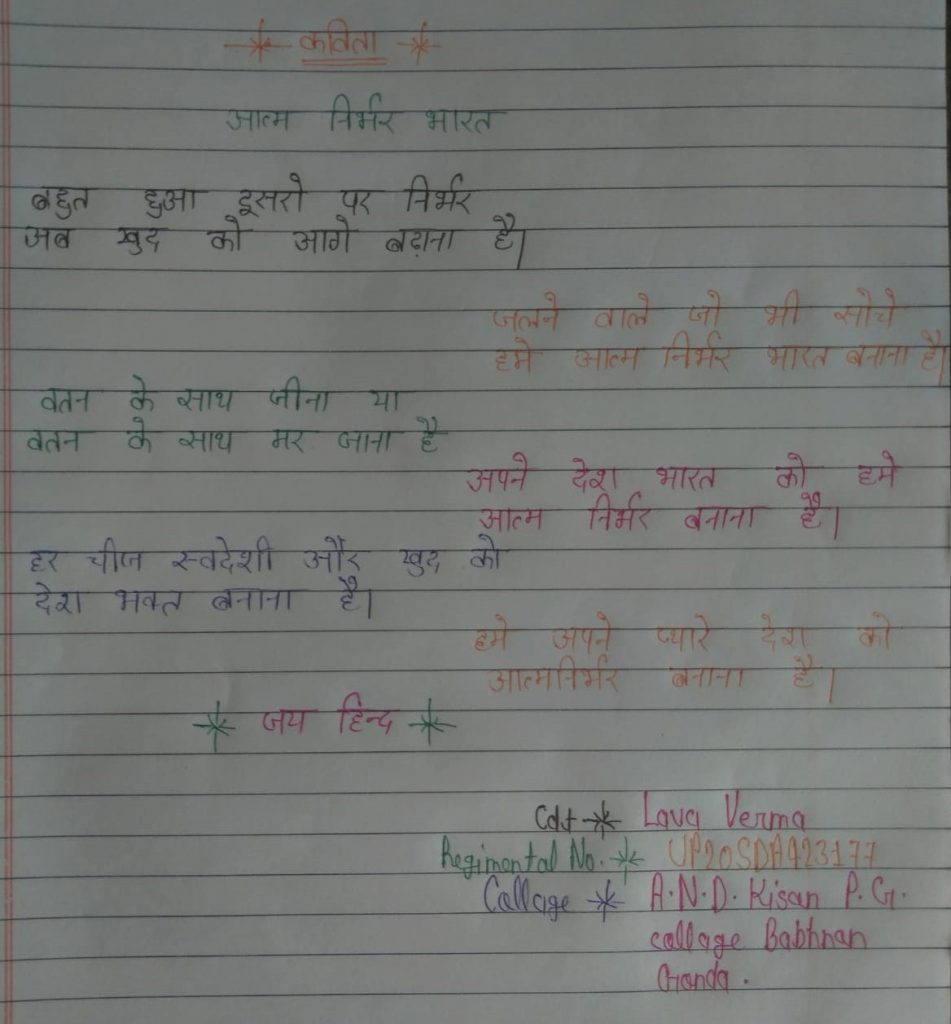 कविता
आत्म निर्भर भारत
बहुत हुआ दूसरो पर निर्भर
अब खुद को आगे बढ़ाना है।
जलने वाले जो भी सोचे
हमे आत्म निर्भर भारत बनाना है।
वतन के साथ जीना या
वतन के साथ मर जाना है
अपने देश भारत को हमे
आत्म निर्भर बनाना है।
हर चीज स्वदेशी और खुद को
देश भक्त बनाना है।
हमे अपने प्यारे देश को
आत्मनिर्भर बनाना है।
जय हिन्द
Cdt Lava Verma
Regimental No. UP20SDA423177
Collage A.N.D. Kisan P.G.
collage Babhnan
Gonda.